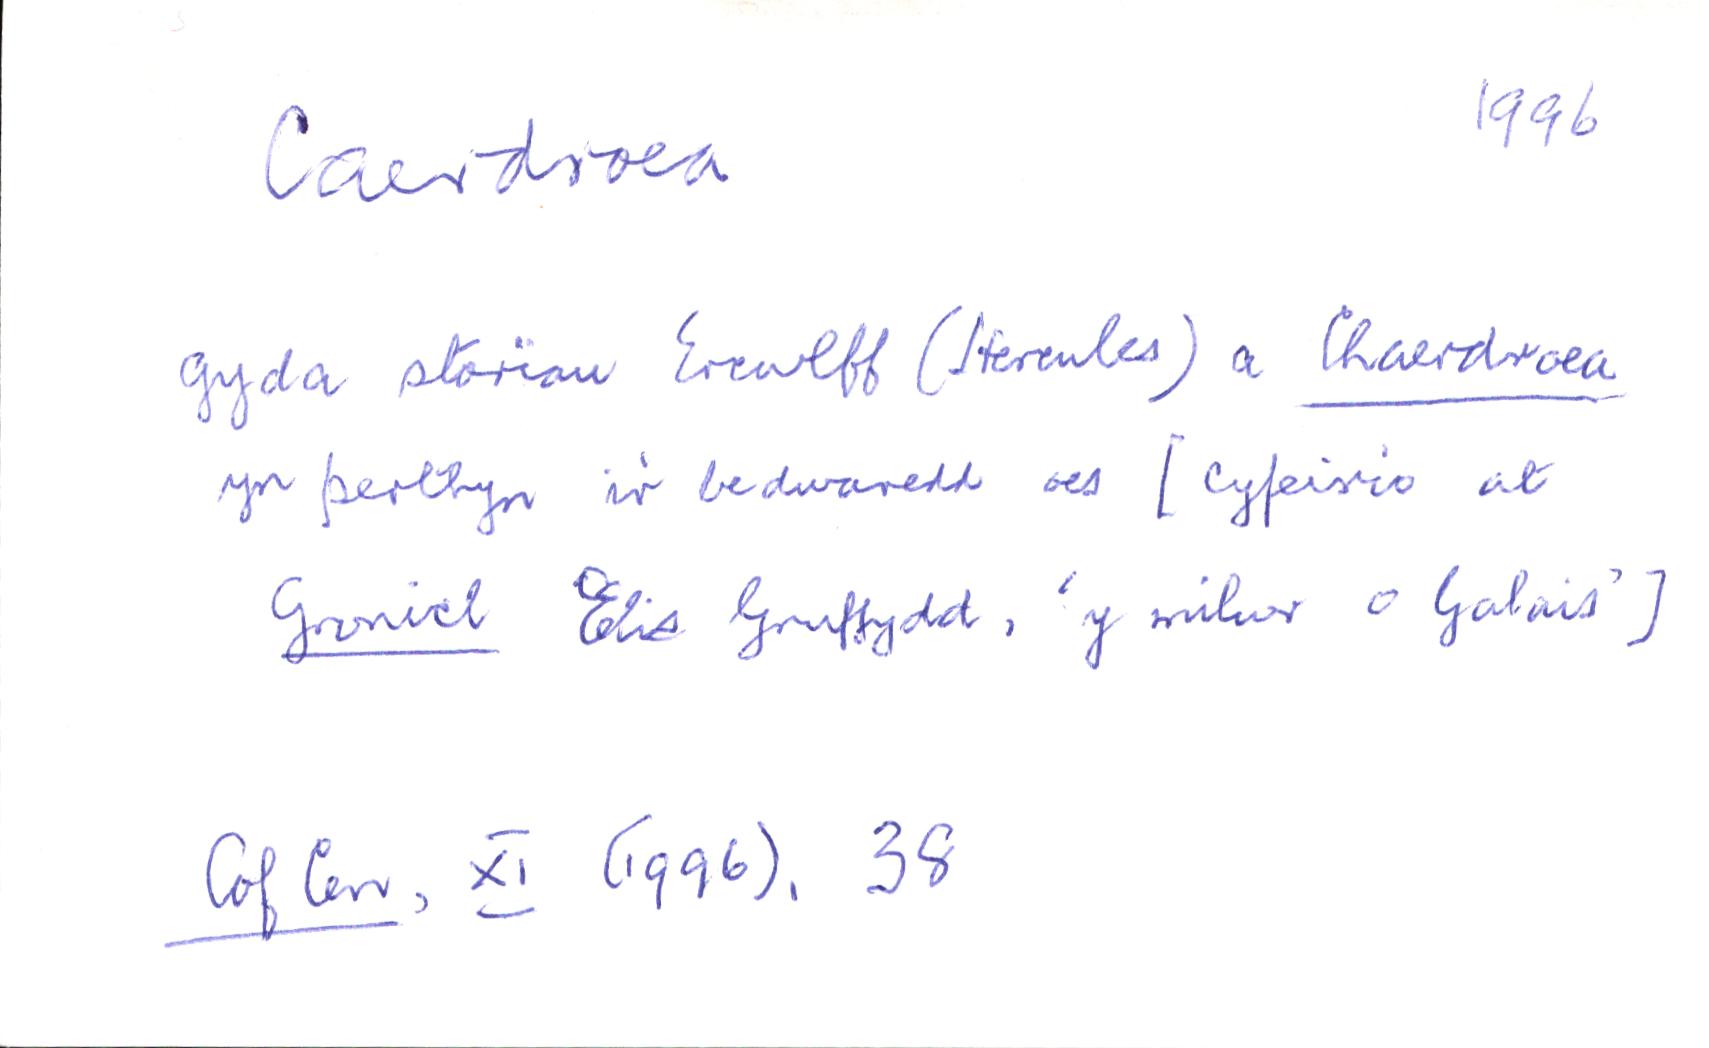 Caerdroea 1996
gyda storïau Ercwlff (Hercules) a Chaerdroea
yn perthyn i'r bedwaredd oes [cyfeirio at
Gronicl Elis Gruffydd, 'y milwr o Galais']
Cof Cerr, XI (1996), 38